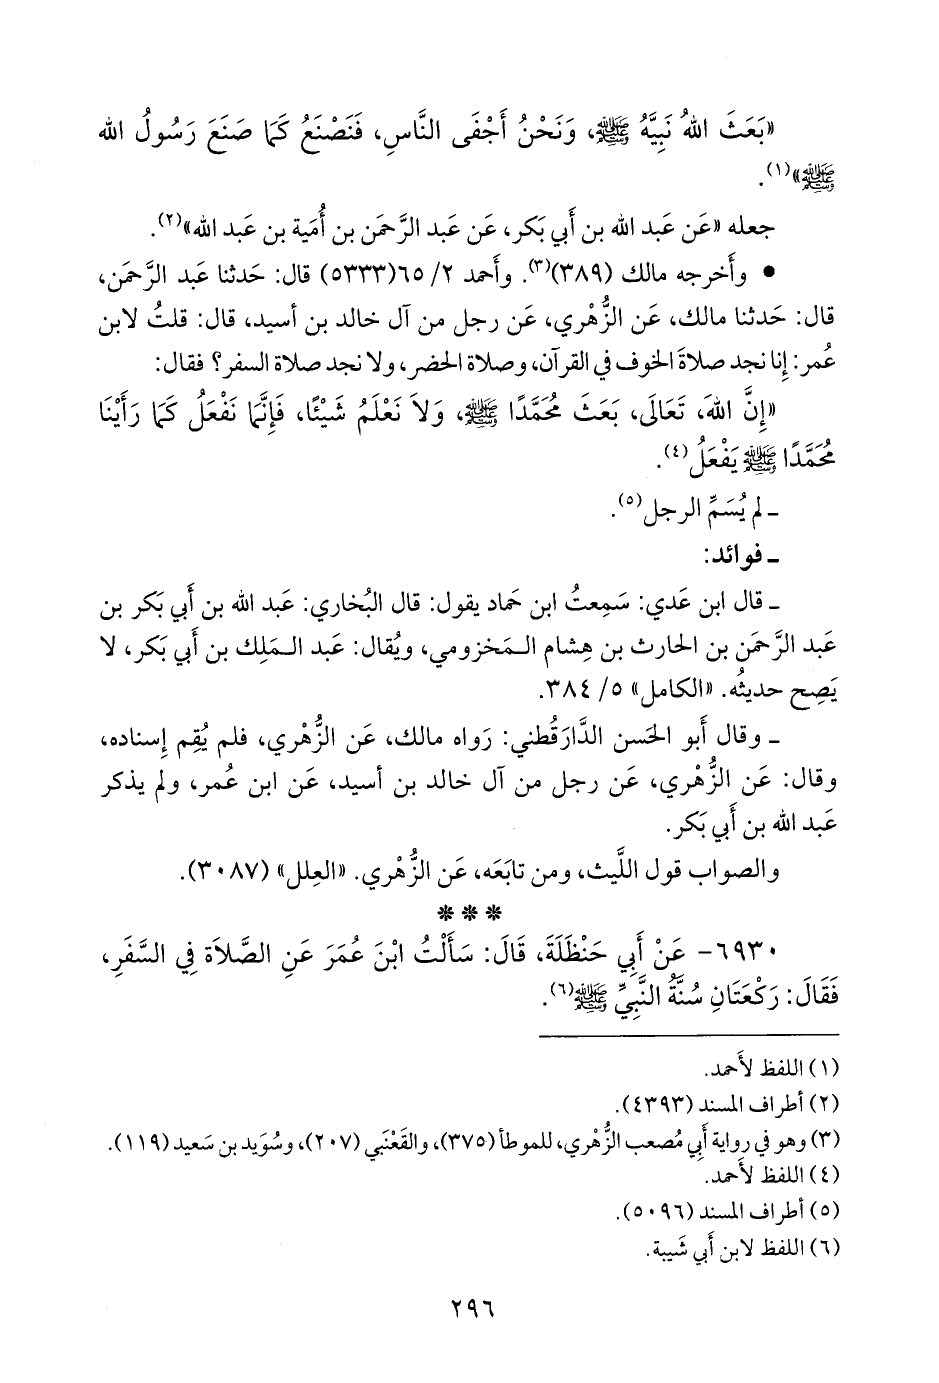 «بَعَثَ اللهُ نَبِيَّهُ ﷺ، وَنَحْنُ أَجْفَى النَّاسِ، فَنَصْنَعُ كَمَا صَنَعَ رَسُولُ الله
ﷺ»(١).
جعله «عَن عَبد الله بن أَبي بَكر، عَن عَبد الرَّحمَن بن أُمَية بن عَبد الله»(٢).
• وأَخرجه مالك (٣٨٩)(٣). وأَحمد ٢/ ٦٥(٥٣٣٣) قال: حَدثنا عَبد الرَّحمَن،
قال: حَدثنا مالك، عَن الزُّهْري، عَن رجل من آل خالد بن أسيد، قال: قلتُ لابن
عُمر: إِنا نجد صلاةَ الخوف في القرآن، وصلاة الحضر، ولا نجد صلاة السفر؟ فقال:
«إِنَّ اللهَ، تَعَالَى، بَعَثَ مُحَمَّدًا ﷺ، وَلاَ نَعْلَمُ شَيْئًا، فَإِنَّمَا نَفْعَلُ كَمَا رَأَيْنَا
مُحَمَّدًا ﷺ يَفْعَلُ(٤).
ـ لم يُسَمِّ الرجل(٥).
ـ فوائد:
ـ قال ابن عَدي: سَمِعتُ ابن حَماد يقول: قال البُخاري: عَبد الله بن أَبي بَكر بن
عَبد الرَّحمَن بن الحارث بن هِشام الـمَخزومي، ويُقال: عَبد الـمَلِك بن أَبي بَكر، لا
يَصِح حديثُه. «الكامل» ٥/ ٣٨٤.
ـ وقال أَبو الحَسن الدَّارَقُطني: رَواه مالك، عَن الزُّهْري، فلم يُقِم إِسناده،
وقال: عَن الزُّهْري، عَن رجل من آل خالد بن أسيد، عَن ابن عُمر، ولم يذكر
عَبد الله بن أَبي بَكر.
والصواب قول اللَّيث، ومن تابَعَه، عَن الزُّهْري. «العِلل» (٣٠٨٧).
* * *
٦٩٣٠- عَنْ أَبِي حَنْظَلَةَ، قَالَ: سَأَلْتُ ابْنَ عُمَرَ عَنِ الصَّلاَة فِي السَّفَرِ،
فَقَالَ: رَكْعَتَانِ سُنَّةُ النَّبِيِّ ﷺ(٦).
(١) اللفظ لأَحمد.
(٢) أطراف المسند (٤٣٩٣).
(٣) وهو في رواية أَبي مُصعب الزُّهْري، للموطأ (٣٧٥)، والقَعْنَبي (٢٠٧)، وسُوَيد بن سَعيد (١١٩).
(٤) اللفظ لأَحمد.
(٥) أطراف المسند (٥٠٩٦).
(٦) اللفظ لابن أَبي شَيبة.
٢٩٦